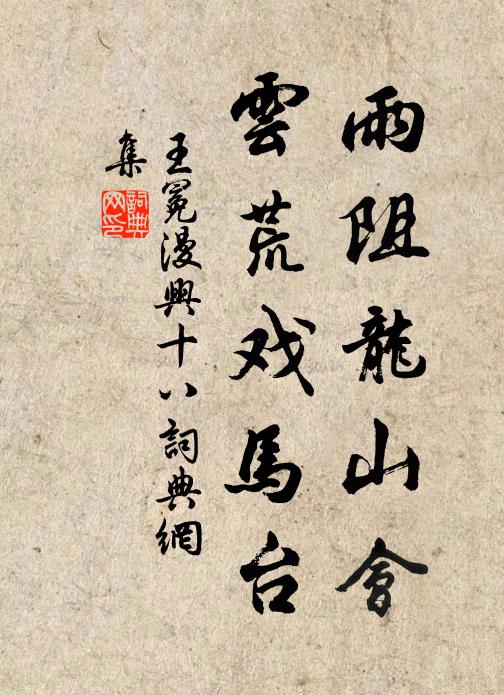 雨阻龍山會
雲荒戏馬台
王冕漫興十八詞典網
集
詞典
网印